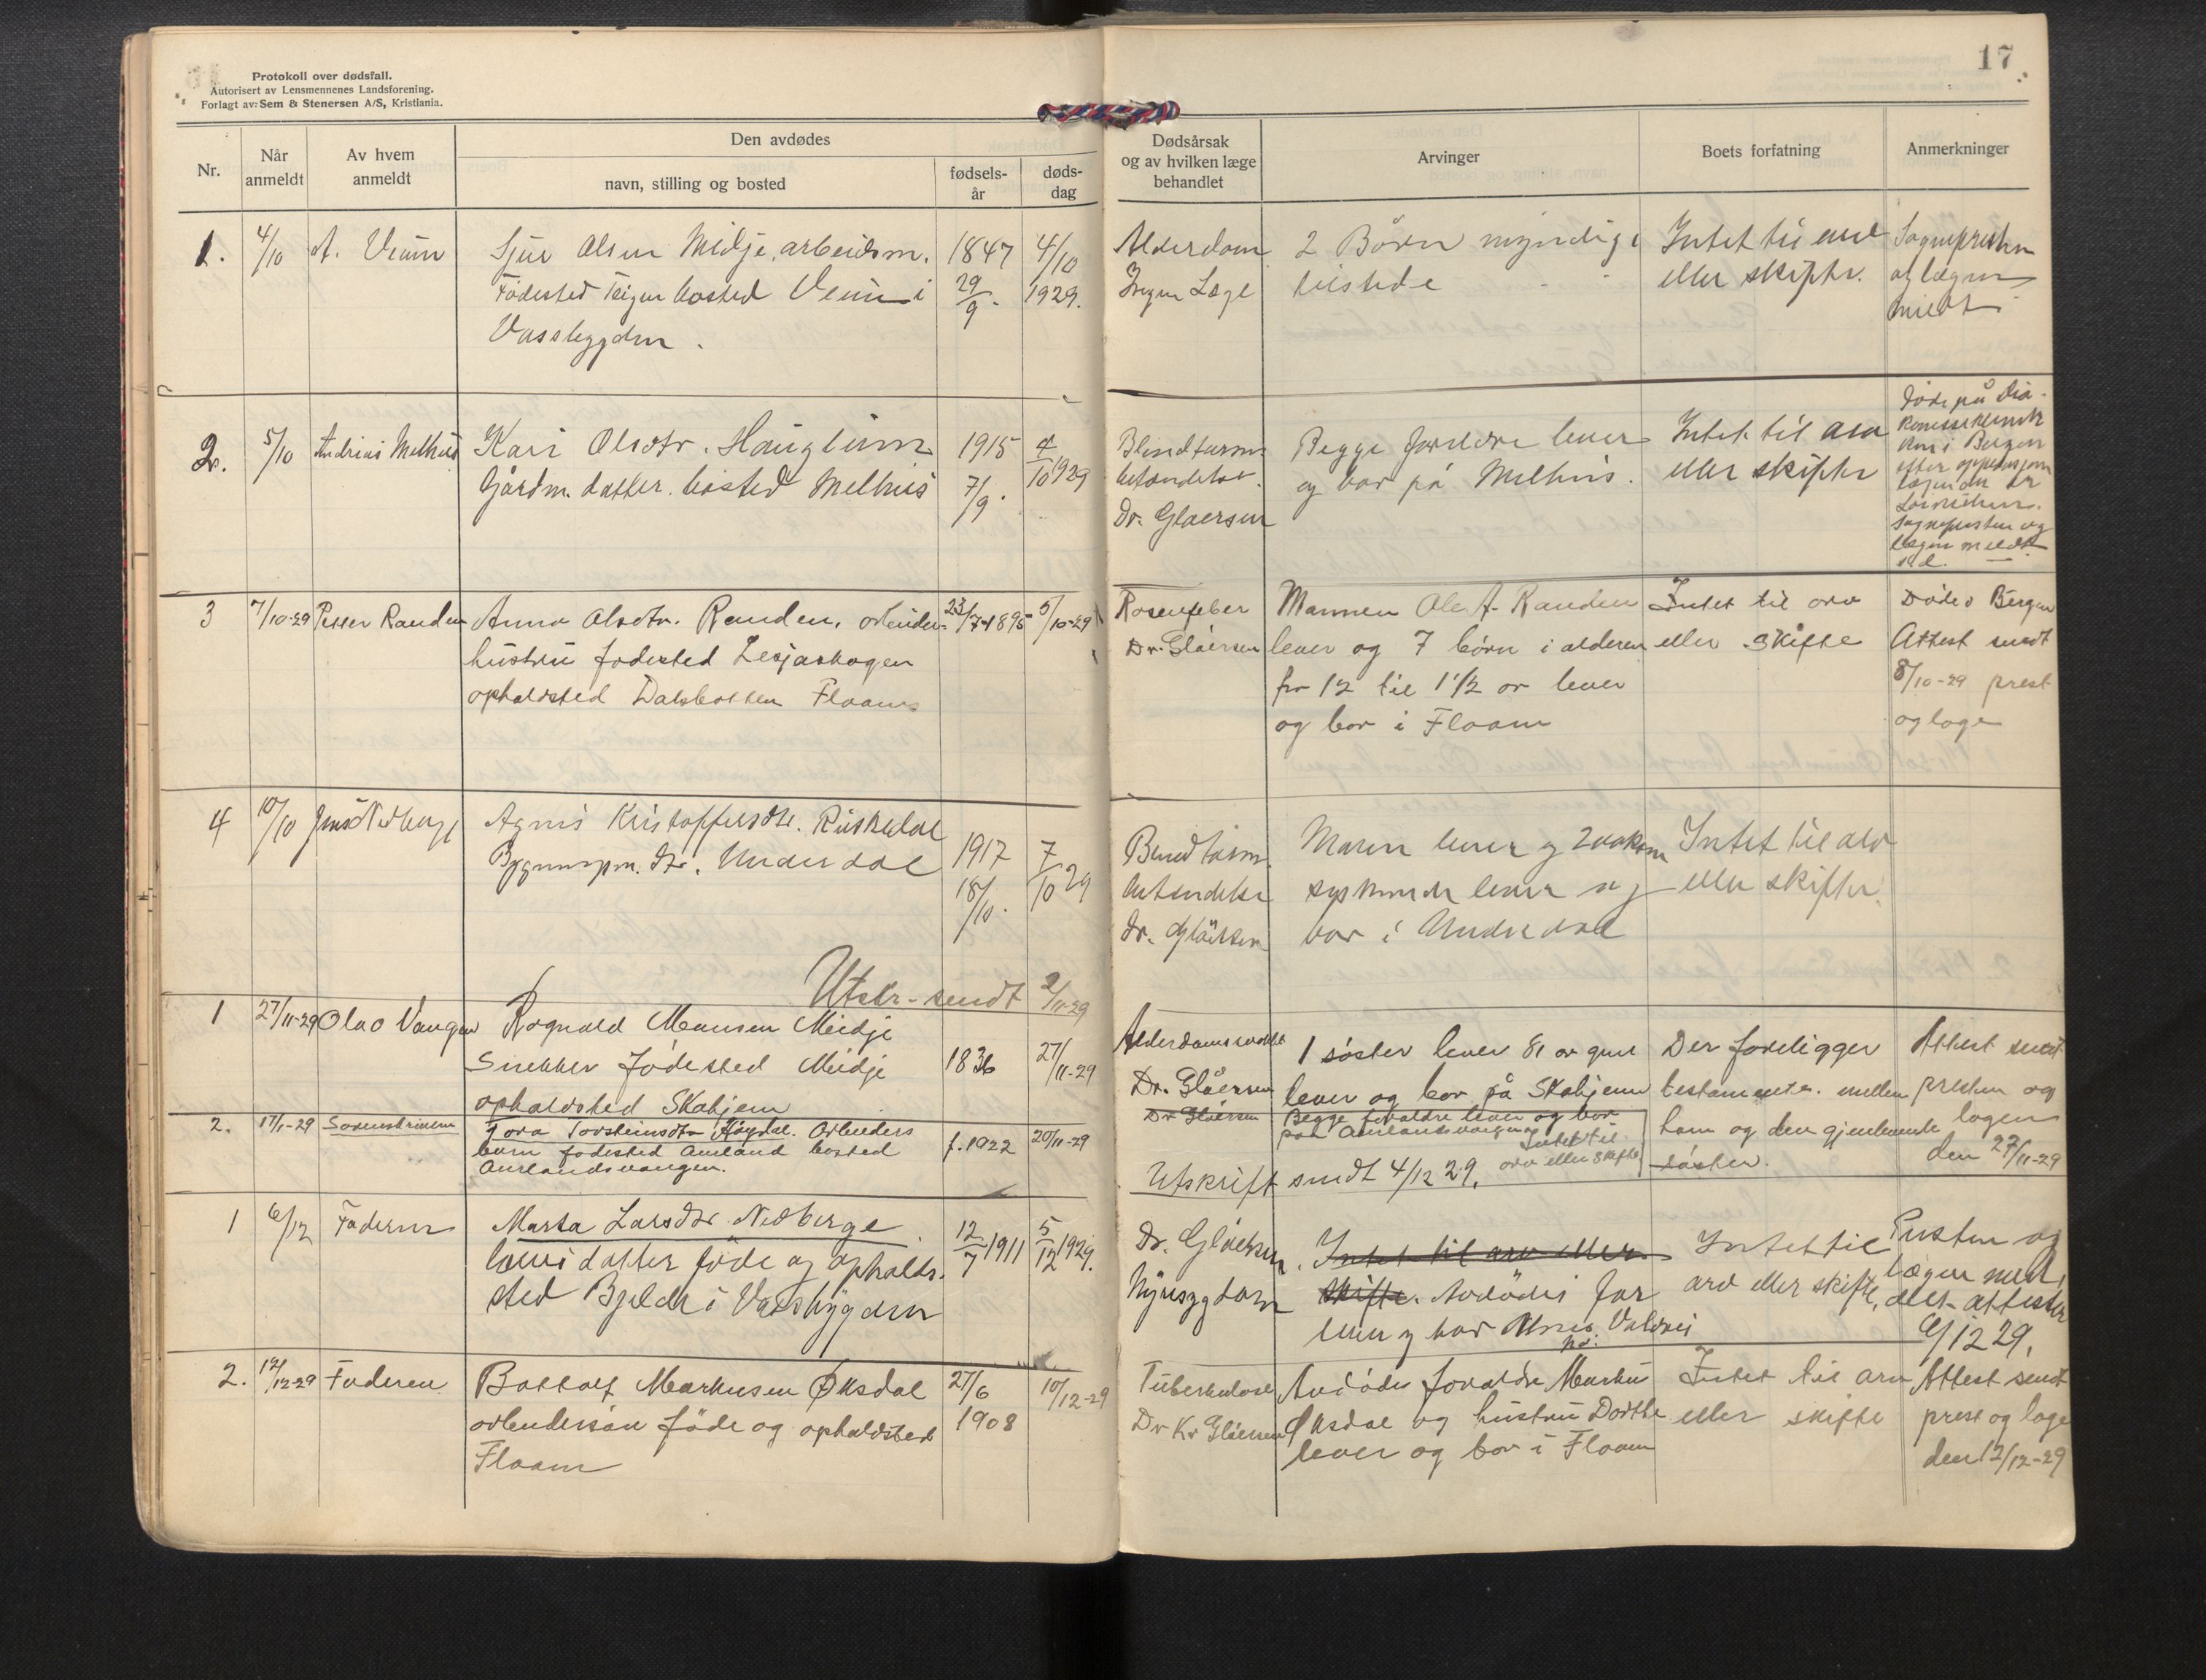 17
Protokoll over dødsfall.
Autorisert av Lensmennenes Landsforening.
Forlagt av: Sem & Stenersen A/S, Kristiania.
Nr.
Når anmeldt
Av hvem anmeldt
Den avdødes
navn, stilling og bosted
fødsels-år
døds-dag
Dødsårsak og av hvilken læge behandlet
Arvinger
Boets forfatning
Anmerkninger
1. 4/10 A. Veum
Sjur Olsen Midje, arbeidsm.
Fødested Teigen bosted Veum i
Vassbygden.
1847 29/9.
4/10 1929.
Alderdom
Ingen Læge
2 Børn myndige
tilstede
Intet til arv
eller skifte.
Sognepresten
og lægen
meldt
2. 5/10 Andreas Melhus
Kari Olsdtr. Hauglum
Gårdm. datter. bosted Melhus
1915 7/9.
4/10 1929
Blindtarms
betændelse.
Dr. Glaersen
Begge foreldre lever
og bor på Melhus.
Intet til arv
eller skifte
Døde på Dia-
konisseklinik
ken i Bergen
efter operasjon
Sognepresten og
lægen meldt
3 7/10-29 Petter Randen
Anna Olsdtr. Randen, arbeider-
hustru fødested Lesjaskogen
opholdsted Dalsbotten Flaam
23/7-1895
5/10-29
Rosenfeber
Dr. Glåersen
Mannen Ole A. Randen
lever og 7 børn i alderen
fra 12 til 1 1/2 år lever
og bor i Flaam
Intet til arv
eller skifte
Døde i Bergen
Attest sendt
8/10-29 prest
og læge
4 10/10 Jens Nedberge
Agnes Kristoffersdtr. Ruskedal
Bygningsm. dtr. Underdal
1917 18/10.
7/10 29
Blindtarm
betændelse
Dr. Glåersen
Moren lever og 2 voksne
syskende lever og
bor i Underdal
Intet til arv
eller skifte.
Utskr. sendt 2/11-29
1 27/11-29 Olav Vangen
Rognald Monsen Midje
Snekker fødested Midje
opholdsted Skahjem
1836
27/11-29
Alderdomssvakhet
Dr. Glåersen
1 søster lever 81 år gml
lever og bor på Skahjem
Der foreligger
testamente. mellem
ham og den gjenlevende
søster.
Attest sendt
presten og
lægen
den 27/11-29
2. 17/1-29 Sorenskriveren
Tora Torsteinsdtr Høydal. Arbeiders
barn fødested Aurland bosted
Aurlandsvangen.
f. 1922
20/11-29
Dr Glåersen
Begge foreldre lever og bor
paa Aurlandsvangen
Intet til
arv eller skifte
Utskrift sendt 4/12 29.
1 6/12 Faderen
Marta Larsdtr Nedberge.
datter føde og opholds-
sted Bjelde i Vassbygden
12/7 1911
5/12 1929.
Dr. Glåersen.
Nyresygdom
Intet til arv eller
skifte. Avdødes far
lever og bor Valdres
Intet til
arv eller skifte,
Presten og
lægen meld,
delt attester
6/12 29.
2. 12/12-29 Faderen
Bottolf Markusen Øksdal
arbeidersøn føde og opholdsted
Flaam
27/6 1908
10/12-29
Tuberkulose
Dr Kr Glåersen
Avdødes foreldre Markus
Øksdal og hustru Dorthe
lever og bor i Flaam
Intet til arv
eller skifte
Attest sendt
prest og læge
den 12/12-29